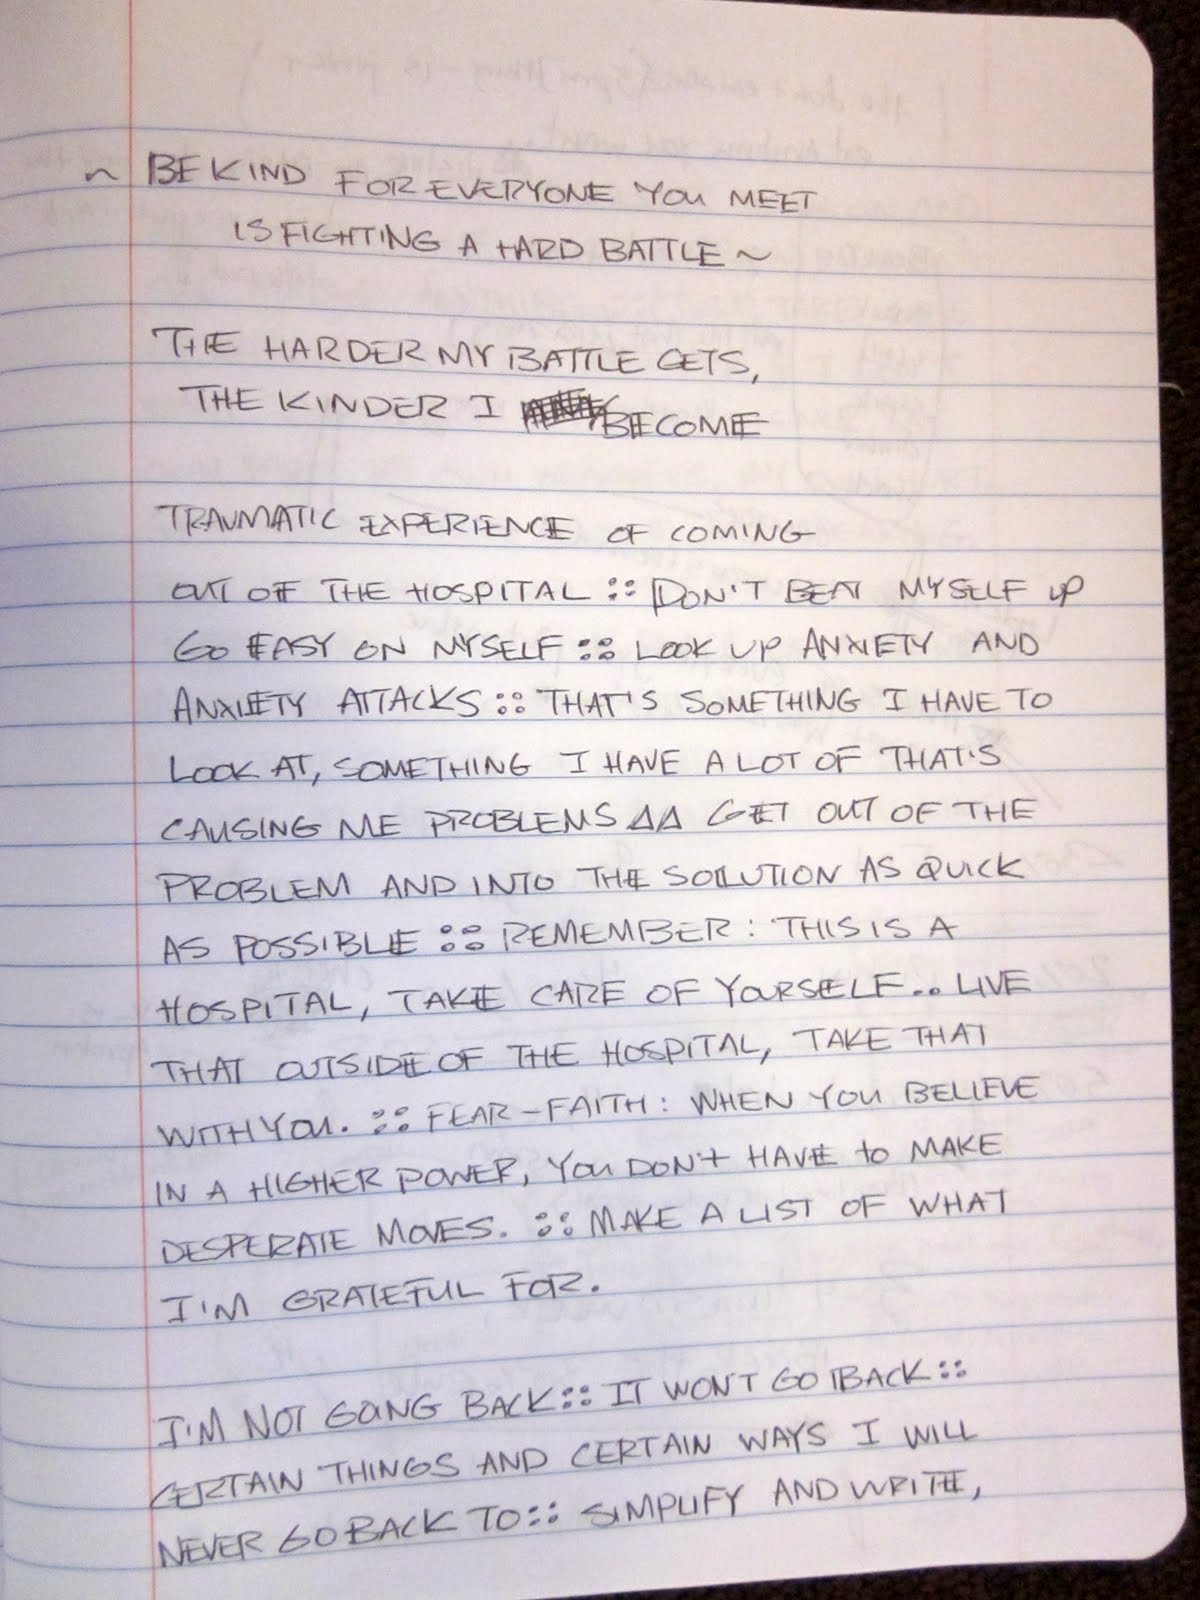 ~ BE KIND FOR EVERYONE YOU MEET
IS FIGHTING A HARD BATTLE ~
THE HARDER MY BATTLE GETS,
THE KINDER I BECOME
TRAUMATIC EXPERIENCE OF COMING
OUT OF THE HOSPITAL :: DON'T BEAT MYSELF UP
GO EASY ON MYSELF :: LOOK UP ANXIETY AND
ANXIETY ATTACKS :: THAT'S SOMETHING I HAVE TO
LOOK AT, SOMETHING I HAVE A LOT OF THAT'S
CAUSING ME PROBLEMS ΔΔ GET OUT OF THE
PROBLEM AND INTO THE SOLUTION AS QUICK
AS POSSIBLE :: REMEMBER: THIS IS A
HOSPITAL, TAKE CARE OF YOURSELF.. LIVE
THAT OUTSIDE OF THE HOSPITAL, TAKE THAT
WITH YOU. :: FEAR-FAITH: WHEN YOU BELIEVE
IN A HIGHER POWER, YOU DON'T HAVE TO MAKE
DESPERATE MOVES. :: MAKE A LIST OF WHAT
I'M GRATEFUL FOR.
I'M NOT GOING BACK :: IT WON'T GO BACK ::
CERTAIN THINGS AND CERTAIN WAYS I WILL
NEVER GO BACK TO :: SIMPLIFY AND WRITE,